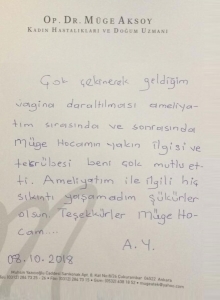 OP. DR. MÜGE AKSOY
KADIN HASTALIKLARI VE DOĞUM UZMANI
Çok çekinerek geldiğim
vagina daraltılması ameliya-
tım sırasında ve sonrasında
Müge Hocamın yakın ilgisi ve
tecrübesi beni çok mutlu et-
ti. Ameliyatım ile ilgili hiç
sıkıntı yaşamadım şükürler
olsun Teşekkürler Müge Ho-
cam....
A. Y.
08.10.2018